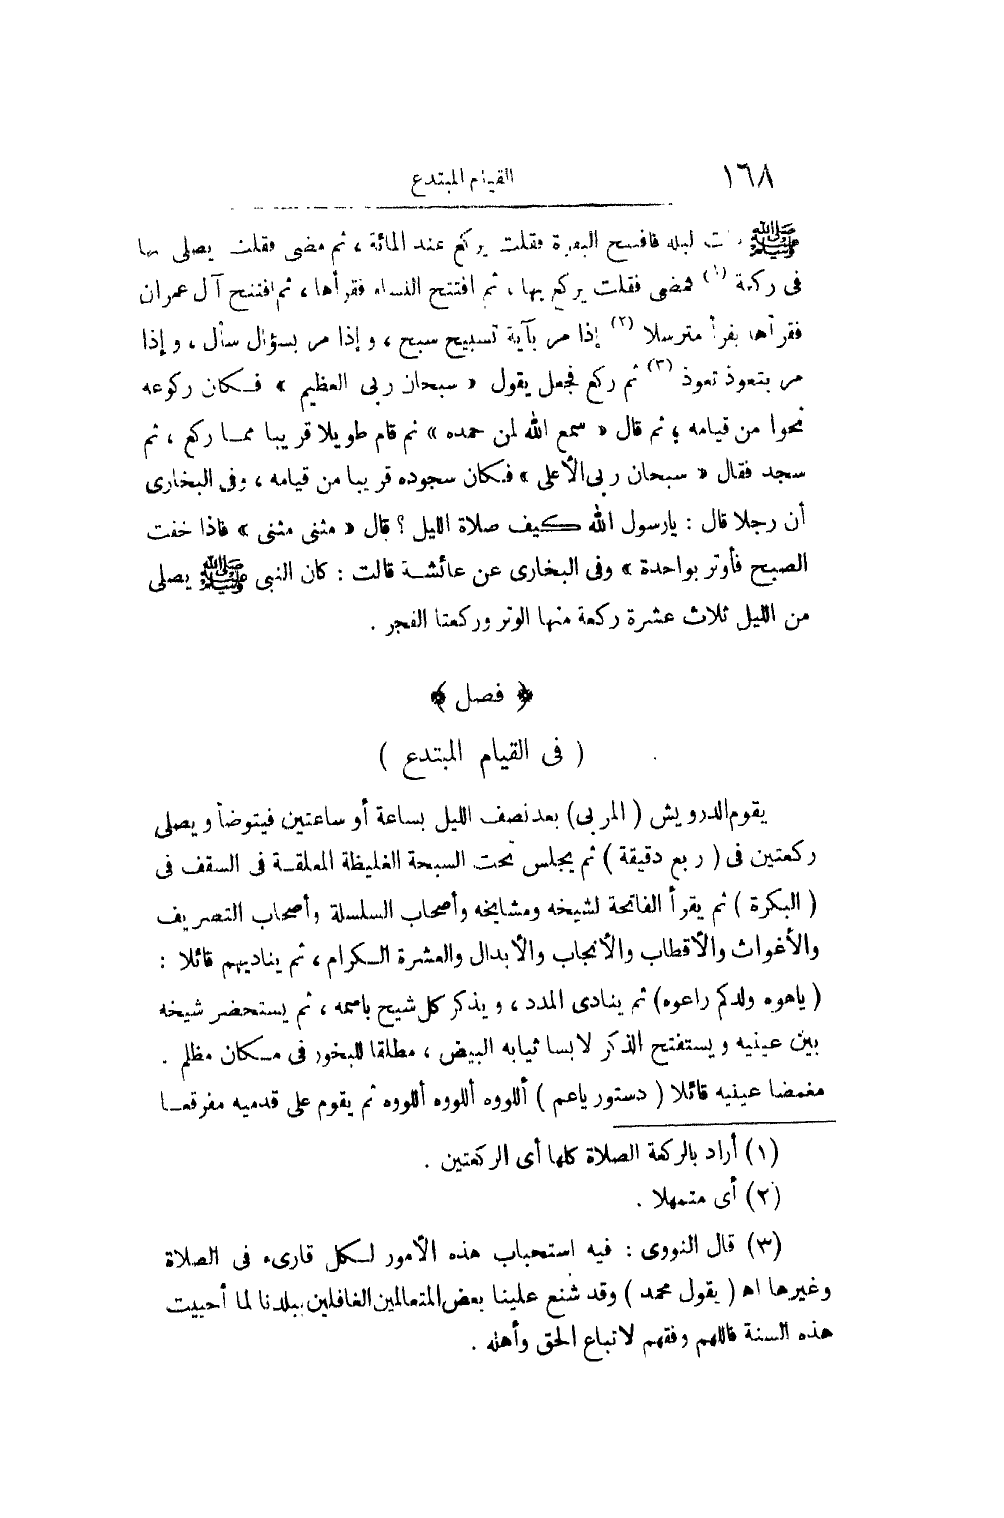 ١٦٨ القيام المبتدع
ﷺ ذات ليلة فافتتح البقرة فقلت يركع عند المائة ، ثم مضى فقلت يصلى بها
فى ركعة (١) فمضى فقلت يركع بها ، ثم افتتح النساء فقرأها ، ثم افتتح آل عمران
فقرأها يقرأ مترسلا (٢) إذا مر بآية تسبيح سبح ، وإذا مر بسؤال سأل ، وإذا
مر بتعوذ تعوذ (٣) ثم ركع فجعل يقول « سبحان ربى العظيم » فكان ركوعه
نحوا من قيامه ؛ ثم قال « سمع الله لمن حمده » ثم قام طويلا قريبا مما ركع ، ثم
سجد فقال « سبحان ربى الأعلى » فكان سجوده قريبا من قيامه ، وفى البخارى
أن رجلا قال : يارسول الله كيف صلاة الليل ؟ قال « مثنى مثنى » فاذا خفت
الصبح فأوتر بواحدة » وفى البخارى عن عائشة قالت : كان النبى ﷺ يصلى
من الليل ثلاث عشرة ركعة منها الوتر وركعتا الفجر .
﴿ فصل ﴾
( فى القيام المبتدع )
يقوم الدرويش ( المربى ) بعد نصف الليل بساعة أو ساعتين فيتوضأ ويصلى
ركعتين فى ( ربع دقيقة ) ثم يجلس تحت السبحة الغليظة المعلقة فى السقف فى
( البكرة ) ثم يقرأ الفاتحة لشيخه ومشايخه وأصحاب السلسلة وأصحاب التصريف
والأغواث والأقطاب والأنجاب والأبدال والعشرة الكرام ، ثم يناديهم قائلا :
( ياهوه ولدكم راعوه ) ثم ينادى المدد ، ويذكر كل شيخ باسمه ، ثم يستحضر شيخه
بين عينيه ويستفتح الذكر لابسا ثيابه البيض ، مطلقا للبخور فى مكان مظلم .
مغمضا عينيه قائلا ( دستور ياعم ) أللووه أللووه أللووه ثم يقوم على قدميه مفرقعا
(١) أراد بالركعة الصلاة كلها أى الركعتين .
(٢) أى متمهلا .
(٣) قال النووى : فيه استحباب هذه الأمور لكل قارىء فى الصلاة
وغيرها اه ( يقول محمد ) وقد شنع علينا بعض المتعالمين الغافلين ببلدنا لما أحييت
هذه السنة فاللهم وفقهم لاتباع الحق وأهله .